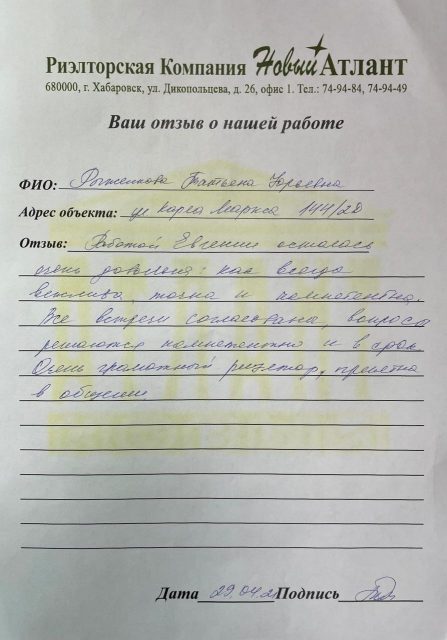 Риэлторская Компания Новый Атлант
680000, г. Хабаровск, ул. Дикопольцева, д. 26, офис 1. Тел.: 74-94-84, 74-94-49
Ваш отзыв о нашей работе
ФИО: Татьяна Юрьевна
Адрес объекта: ул Карла Маркса 144/20
Отзыв: Работой Евгении осталась
очень довольна: как всегда
вежлива, точна и компетентна.
Все встречи согласованы, вопросы
решаются компетентно и в срок.
Очень грамотный риэлтор, приятна
в общении
Дата 29.04.21 Подпись